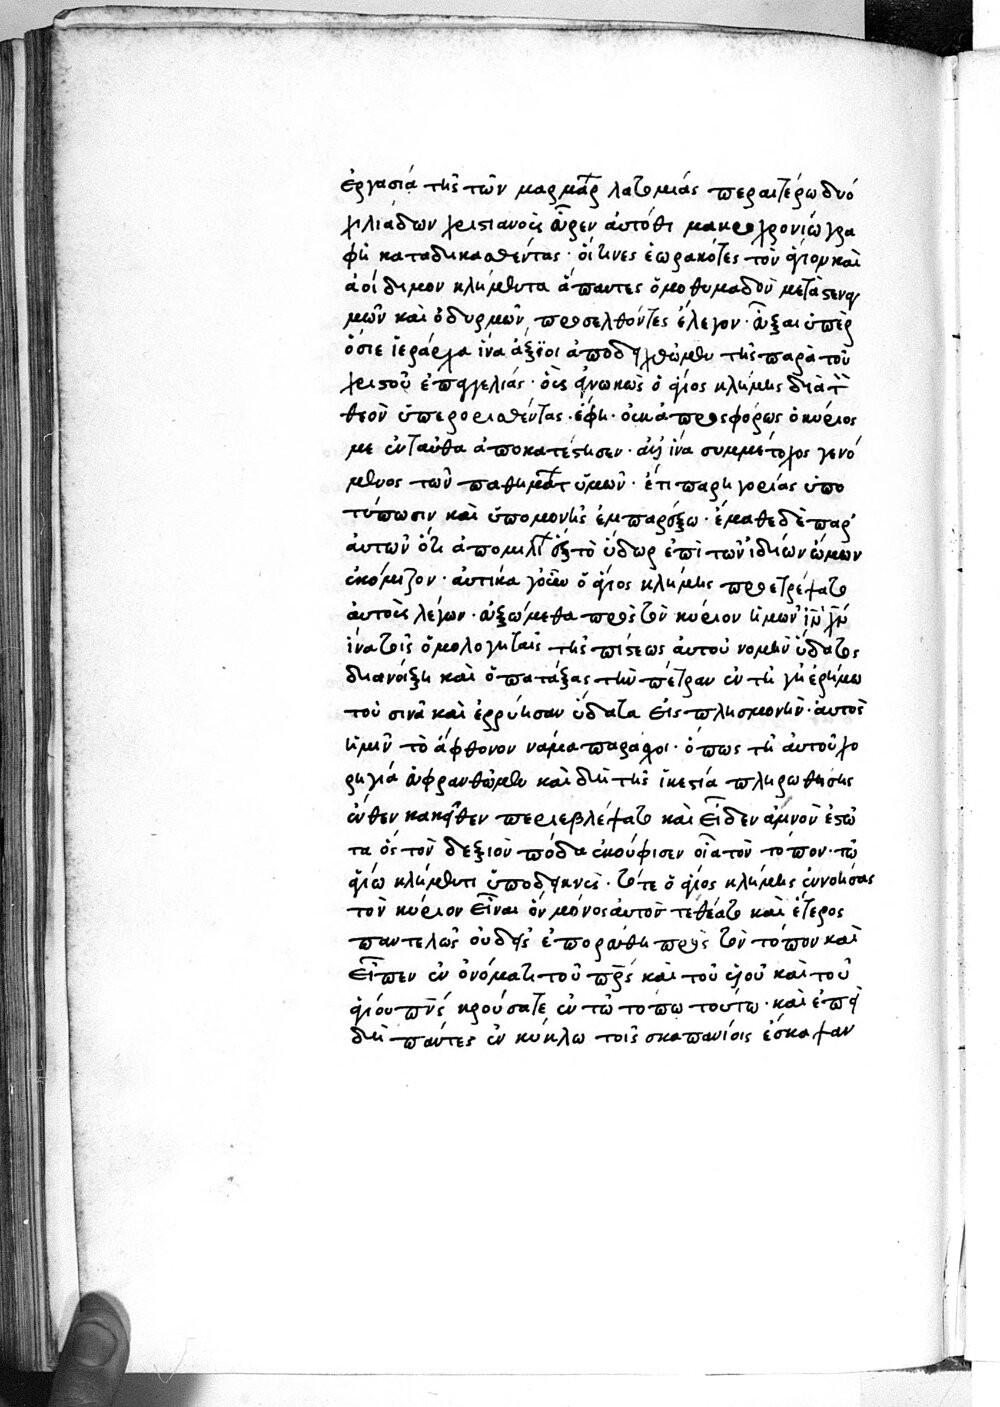 ἐργασία τῆς τῶν μαρμάρ λατομίας περαιτέρω δύο
χιλιάδων χριστιανοὺς εὗρεν αὐτόθι μακροχρονίω γρα
φῆ καταδικασθέντας· οἵτινες ἑωρακότες τὸν ἅγιον καὶ
ἀοίδιμον κλήμεντα ἅπαντες ὁμοθυμαδὸν μετὰ στεναγ
μῶν καὶ ὀδυρμῶν, προσελθόντες ἔλεγον· εὖξαι ὑπὲρ
ὅσιε ἱεράρχα ἵνα ἄξιοι ἀποδειχθῶμεν τῆς παρὰ τοῦ
χριστοῦ ἐπαγγελίας· οὓς ἐγνωκὼς ὁ ἅγιος κλήμης διὰ τ
θεὸν ὑπερορισθέντας· ἔφη· οὐκ ἀπροσφόρως ὁ κύριος
με ἐνταῦθα ἀποκατέστησεν· ἀλλ ἵνα συμμέτοχος γενό
μενος τῶν παθημάτ ὑμῶν· ἔτι παρηγορίας ὑπο
τύπωσιν καὶ ὑπομονῆς ἐμπαρέξω· ἔμαθε δὲ παρ
αὐτῶν ὅτι ἀπὸ μιλί ἓξ τὸ ὕδωρ ἐπὶ τῶν ἰδίων ὤμων
ἐκόμιζον· αὐτίκα γοῦν ὁ ἅγιος κλήμης προετρέψατο
αὐτοὺς λέγων· εὐξώμεθα πρὸς τὸν κύριον ἡμῶν ἰν χν
ἵνα τοῖς ὁμολογηταῖς τῆς πίστεως αὐτοῦ νομὴν ὕδατος
διανοίξη καὶ ὁ πατάξας τὴν πέτραν ἐν τῆ γῆ ἐρήμω
τοῦ σινᾶ καὶ ἐρρύησαν ὕδατα εἰς πλησμονήν· αὐτὸς
ἡμῖν τὸ ἄφθονον νάμα παράσχοι· ὅπως τῆ αὐτοῦ χο
ρηγία εὐφρανθῶμεν καὶ δὴ τῆς ἱκεσία πληρωθήσης
ἔνθεν κακεῖθεν περιεβλέψατο καὶ εἶδεν ἀμνὸν ἑστῶ
τα ὃς τὸν δεξιὸν πόδα ἐκούφισεν οἷα τὸν τόπον· τῶ
ἁγίω κλήμεντι ὑποδεικνύς· τότε ὁ ἅγιος κλήμης ἐννοήσας
τὸν κύριον εἶναι ὃν μόνος αὐτὸν τεθέατο καὶ ἕτερος
παντελῶς οὐδεὶς ἐπορεύθη πρὸς τὸν τόπον καὶ
εἶπεν ἐν ὀνόματι τοῦ πρς καὶ τοῦ υἱοῦ καὶ τοῦ
ἁγίου πνς κρούσατε ἐν τῶ τόπω τούτω· καὶ ἐπει
δὴ πάντες ἐν κύκλω τοῖς σκαπανίοις ἔσκαψαν